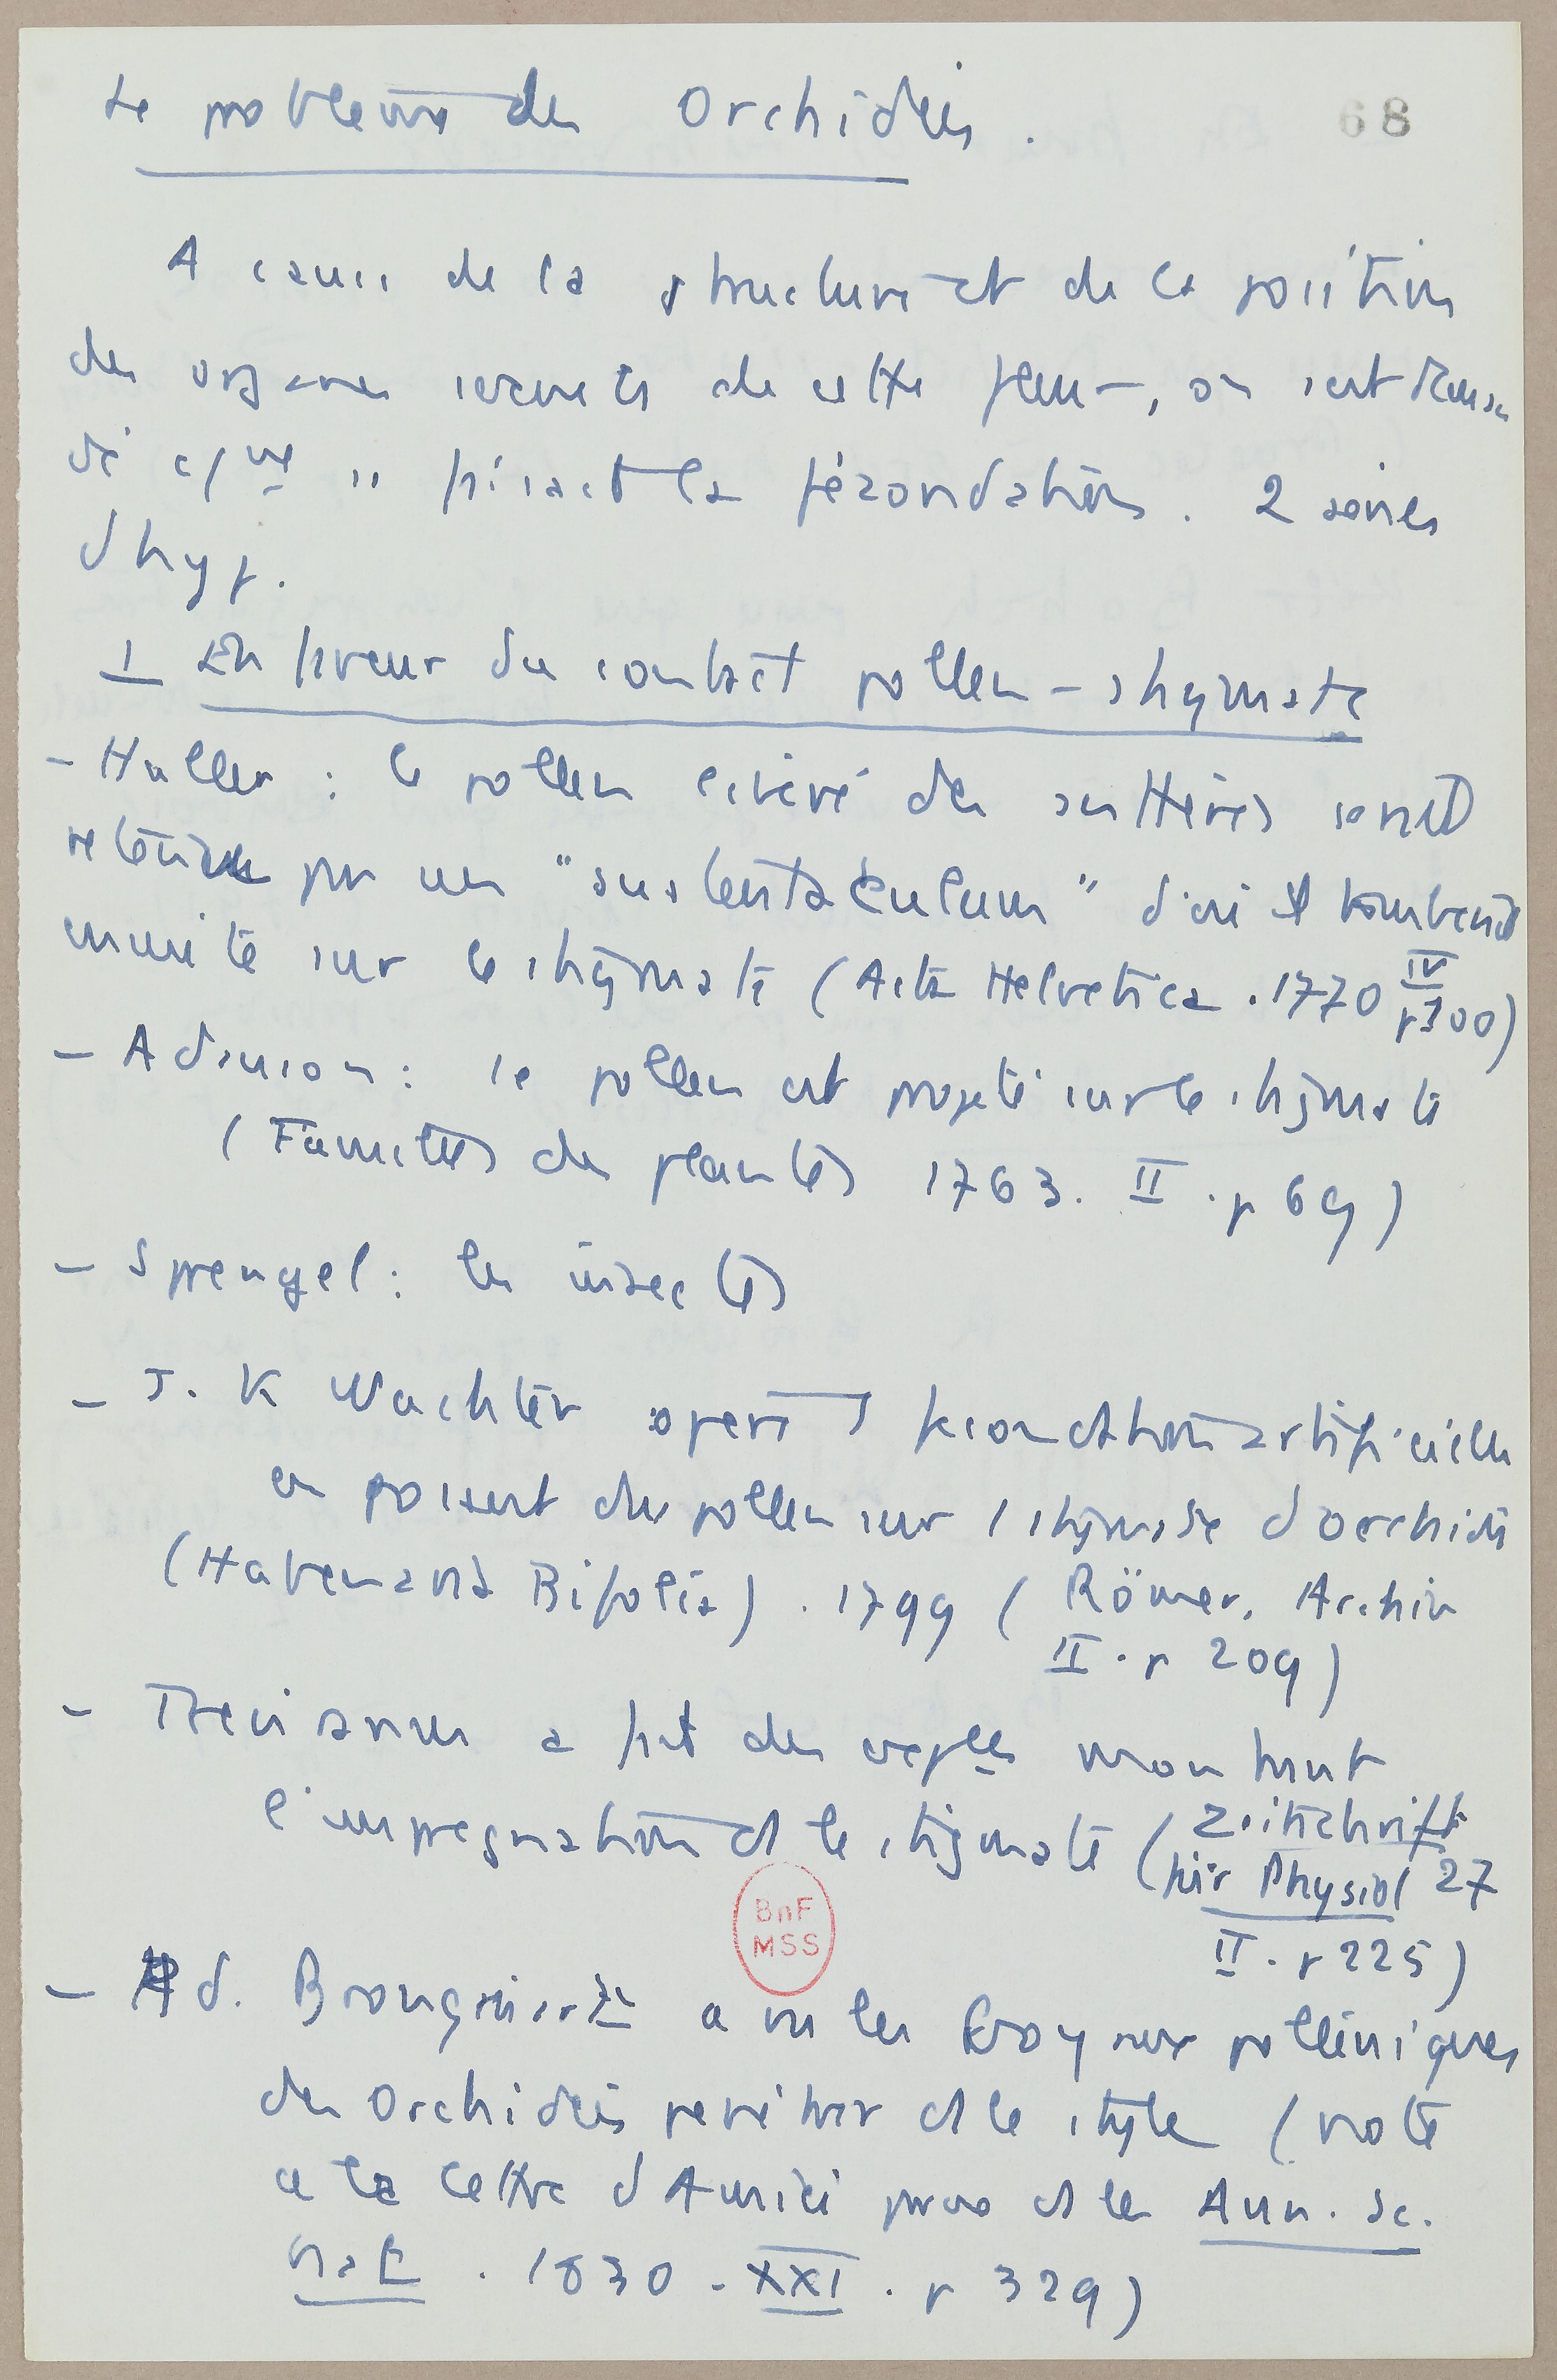 Le problème des Orchidées.
68
A cause de la structure et de la position
des organes sexuels de cette fleur, on s'est deman
dé c/ne se faisait la fécondation. 2 séries
d'hyp.
I En faveur du contact pollen - stigmate
- Haller : le pollen libéré des anthères sont
retenu par un "sustentaculum" d'où il tombent
ensuite sur le stigmate (Acta Helvetica. 1770 IV
p 100)
- Adanson : le pollen est projeté sur le stigmate
(Familles des plantes 1763. II. p 69)
- Sprengel : les insectes
- J. K Wachter opère 1 fécondation artificielle
en posant du pollen sur 1 stigmate d'orchidée
(Habenaria Bifolia). 1799 ( Römer. Archiv
II. p 209)
- Treviranus a fait des expces montrant
l'imprégnation ds le stigmate ( Zeitschrift
für Physiol 27
II. p 225)
BnF
MSS
- Ad. Brongniart a vu les boyaux polliniques
des Orchidées pénétrer ds le style ( note
à la lettre d'Amici parue ds les Ann. Sc.
nat. 1830 - XXI. p 329)